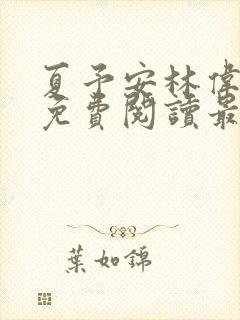 夏予安林偉
免費閱讀最
葉如錦